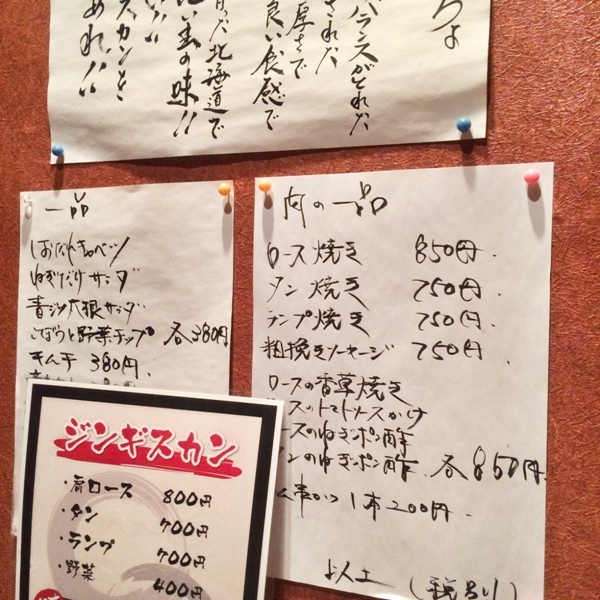 ちょ
バランスがとれた
された
厚さで
良い食感で
った北海道で
い羊の味!!
い!!
スカンを
あれ!!
一品
ほたれキャベツ
ねぎだけサラダ
青じソ大根サラダ
ごぼうと野菜チップ 各380円
キムチ 380円.
肉の一品
ロース焼き 850円.
タン焼き 750円.
ランプ焼き 750円.
粗挽きソーセージ 750円.
ロースの香草焼き
ース トマトソースかけ
ースのねぎポン酢
ンのねぎポン酢 各850円.
串かつ 1本200円.
以上
(税別)
ジンギスカン
・肩ロース 800円
・タン 700円
・ランプ 700円
・野菜 400円